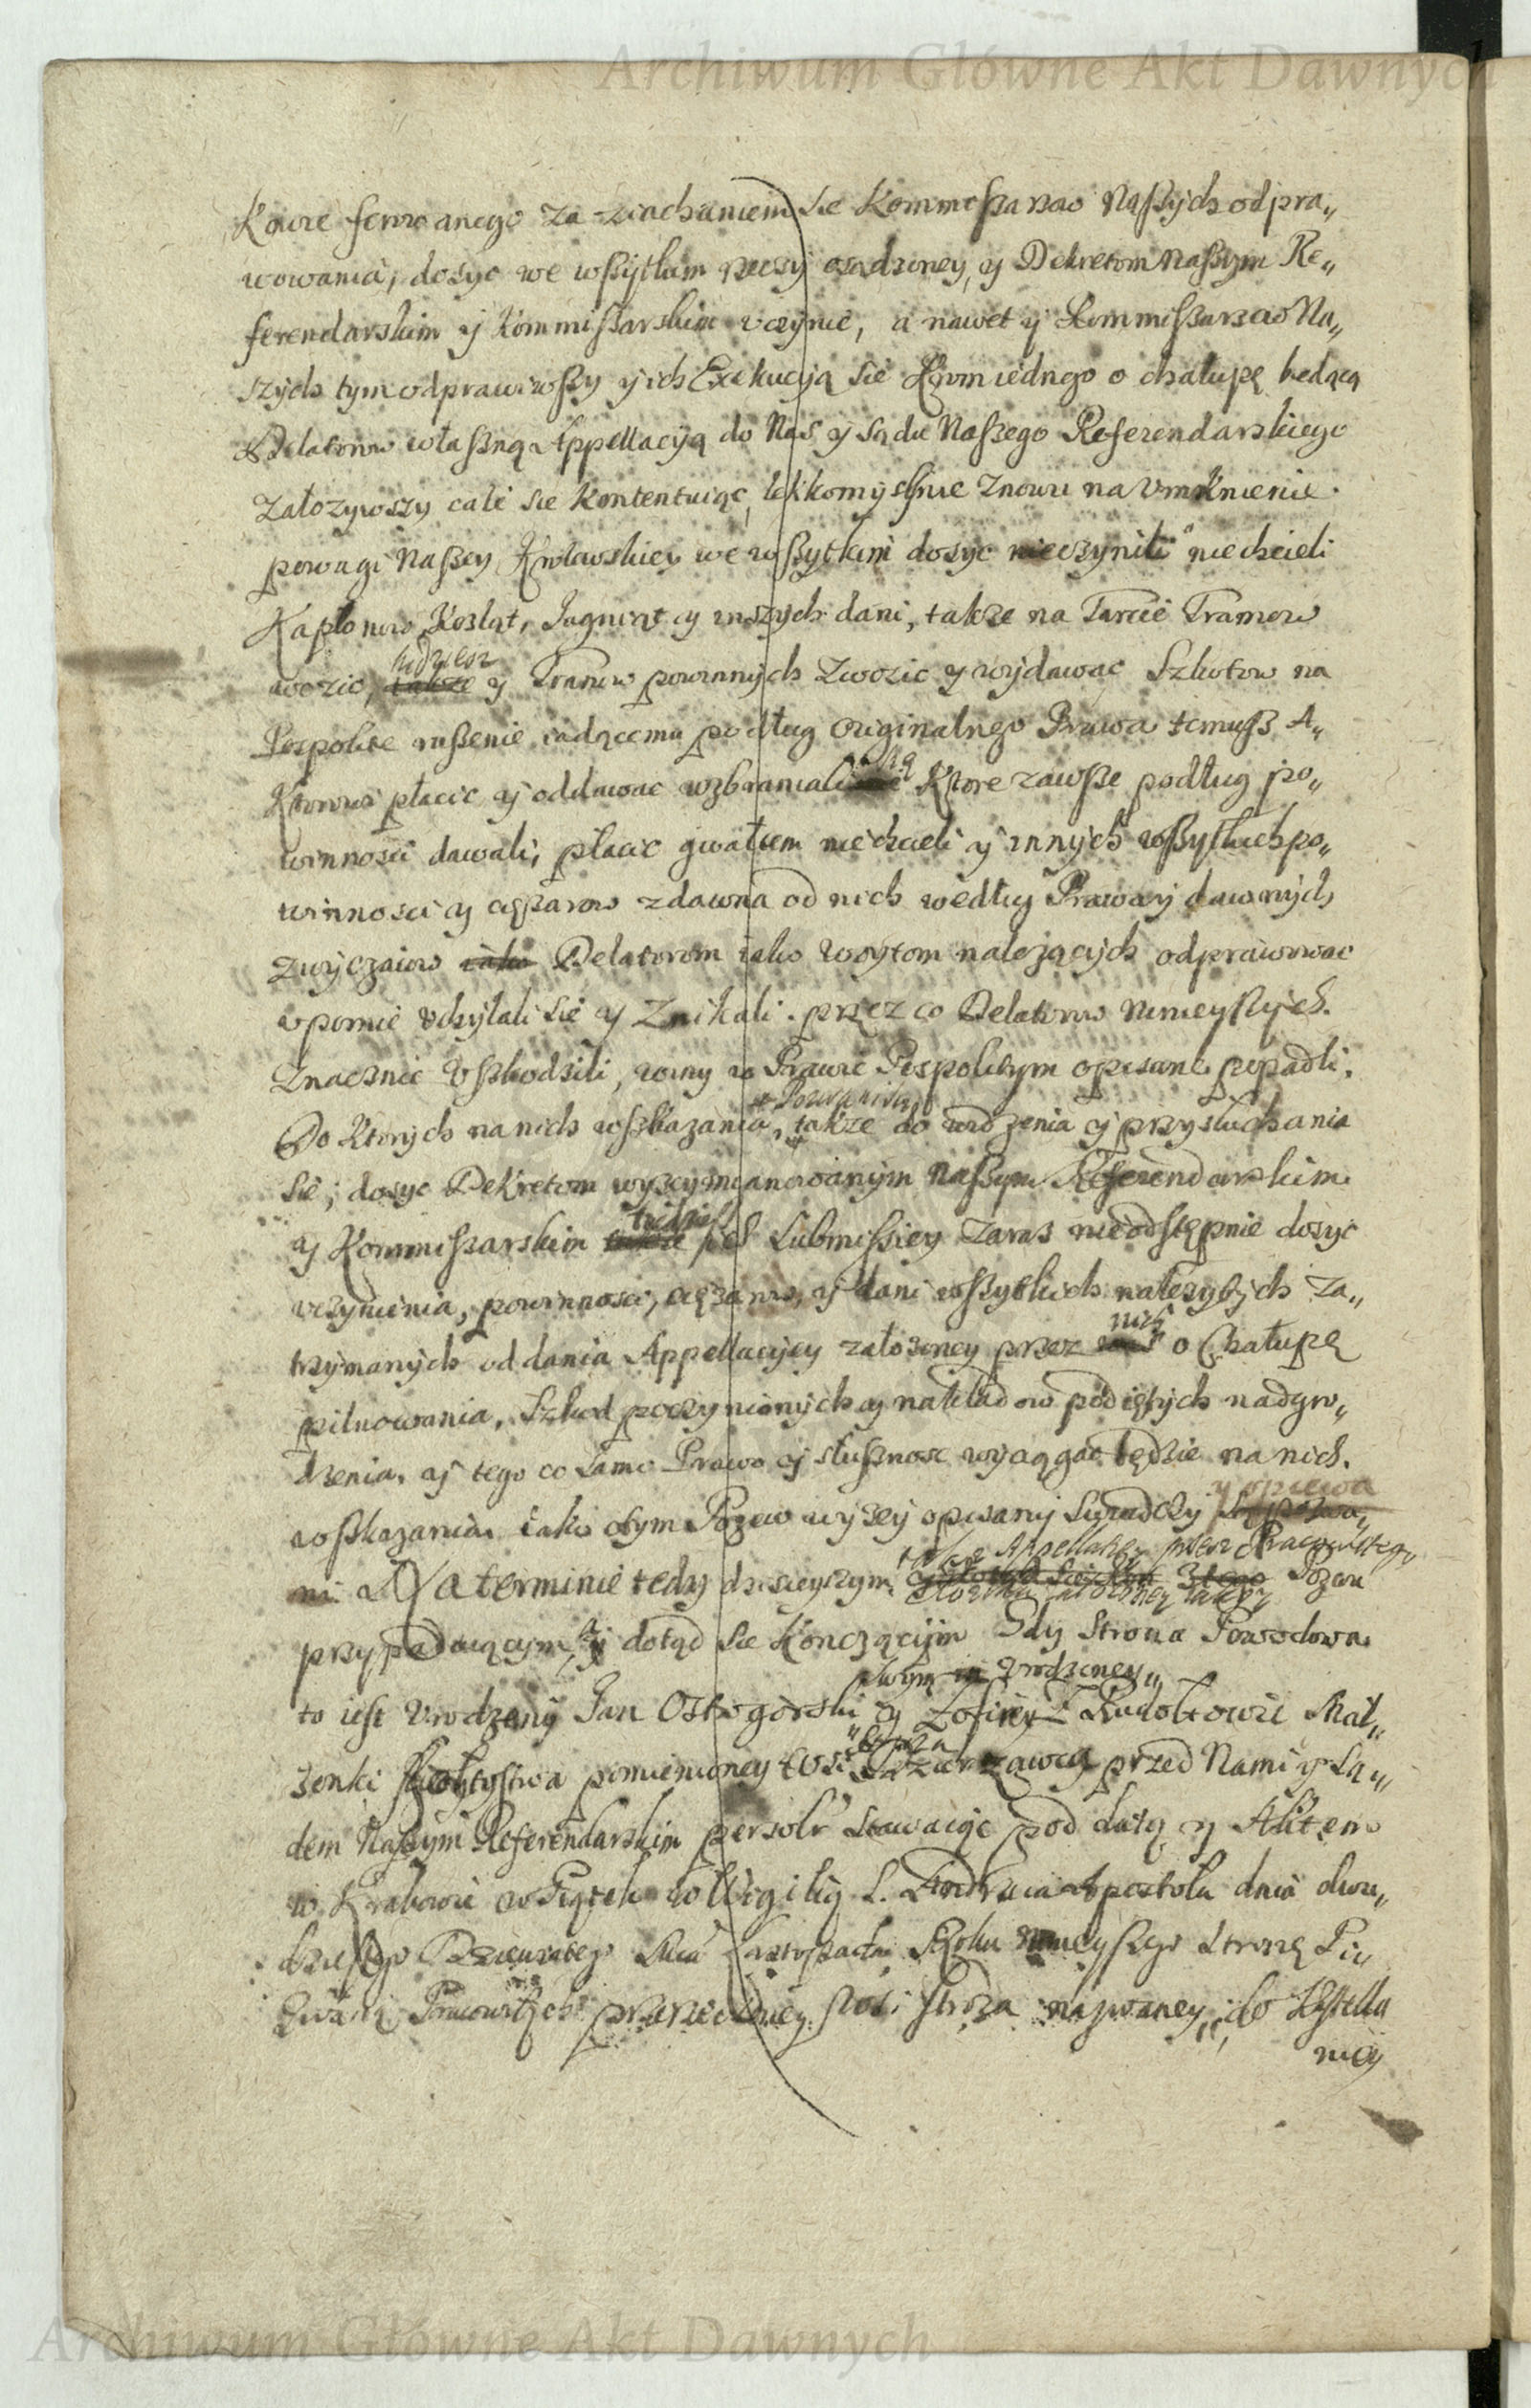 Archiwum Główne Akt Dawnych
ferowanego za ziachaniem sie Kommissarzow Naszych odpra„
wowania, dosyc we wszytkim rzeczy osądzoney, y Dekretom Naszym Re„
ferendarskim y Kommissarskim uczynic, a nawet y Kommissarzow Na„
szych tym odprawiwszy y ich Exekucyą sie o chałupę będącą
Delatorow własną Appellacyą do Nas y Sądu Naszego Referendarskiego
załozywszy cale sie kontentuiąc, lekkomyslnie znowu na
powagi Naszey Krolewskiey we wszytkim dosyc nieczynili niechcieli
Kapłonow, Kozląt, Jagniąt y inszych dani, także na Tarcie Tramow
wozic, tudziesz y Tramow powinnych zwozic y wydawac Szkotow na
Pospolite ruszenie iadącemu podług originalnego Prawa temusz A„
ktorowi płacic y oddawac wzbraniali Ktore zawsze podług po„
winnosci dawali, płacic gwałtem niechcieli y innych wszytkich po„
winnosci y cięzarow zdawna od nich według Prawa y dawnych
zwyczaiow iako Delatorom iako Woytom nalezących odprawowac
upornie uchylali sie y znikali. przez co Delatorow ninieyszych
znacznie uszkodzili, winy w Prawie Pospolitym opisane popadli.
Do Ktorych na nich wskazania, także do widzenia y przysłuchania
sie; dosyc Dekretom wyzey mianowanym Naszym Referendarskim
y Kommissarskim tudziesz Submissiey zaraz nieodstępnie dosyc
uczynienia, powinnosci, cięzarow, y dani wszytkich nalezytych za„
trzymanych oddania Appellacyey załozoney przez nich o Chałupę
pilnowania, Szkod poczynionych y nakładow podiętych nadgro„
dzenia, y tego co samo Prawo y słusznosc wyciągac będzie na nich.
wskazania iako o tym Pozew wyzey opisany swiadczy y opiewa
Na terminie tedy dzisieyszym także Appellacyey przez Pracowitego
przypadaiącym, y dotąd sie kończącym Gdy Strona Powodowa
swym urodzoney„
to iest Urodzony Jan Ostrogorski y Zofiiey Rudołtowic Mał„
zonki pomienioney Wsi przed Nami y Są„
dem Naszym Referendarskim stawaiąc pod datą y Aktem
w Krakowie w Piątek w Wigilią S. Andrzeia Apostoła dnia dwu„
dziestego Dziewiątego Roku ninieyszego Stronę Po„
zwaną Pracowitych przerzeczoney Wsi Stroza nazwaney, do
niey
Archiwum Główne Akt Dawnych